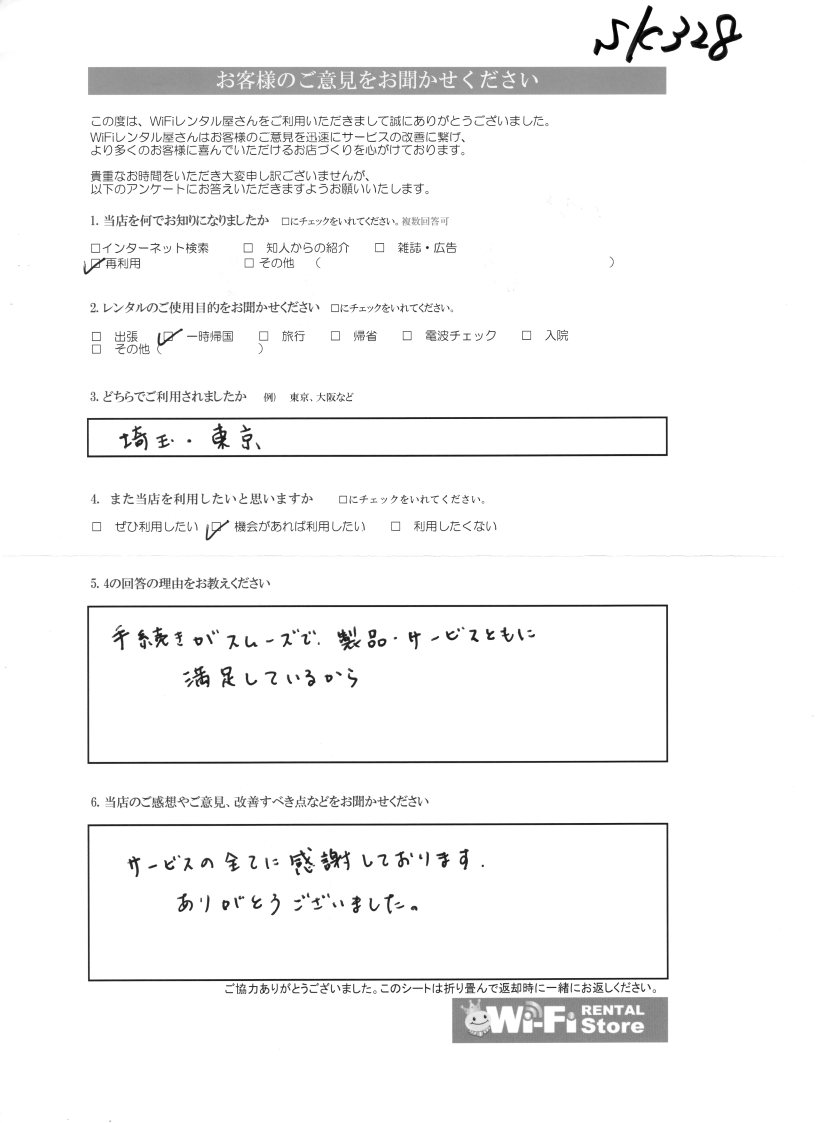 SK328
お客様のご意見をお聞かせください
この度は、WiFiレンタル屋さんをご利用いただきまして誠にありがとうございました。
WiFiレンタル屋さんはお客様のご意見を迅速にサービスの改善に繋げ、
より多くのお客様に喜んでいただけるお店づくりを心がけております。
貴重なお時間をいただき大変申し訳ございませんが、
以下のアンケートにお答えいただきますようお願いいたします。
1. 当店を何でお知りになりましたか □にチェックをいれてください。複数回答可
□インターネット検索 □ 知人からの紹介 □ 雑誌・広告
☑再利用 □ その他 ( )
2. レンタルのご使用目的をお聞かせください □にチェックをいれてください。
□ 出張 ☑ 一時帰国 □ 旅行 □ 帰省 □ 電波チェック □ 入院
□ その他 ( )
3. どちらでご利用されましたか 例) 東京、大阪など
埼玉・東京、
4. また当店を利用したいと思いますか □にチェックをいれてください。
□ ぜひ利用したい ☑ 機会があれば利用したい □ 利用したくない
5. 4の回答の理由をお教えください
手続きがスムーズで、製品・サービスともに
満足しているから
6. 当店のご感想やご意見、改善すべき点などをお聞かせください
サービスの全てに感謝しております.
ありがとうございました。
ご協力ありがとうございました。このシートは折り畳んで返却時に一緒にお返しください。
Wi-Fi RENTAL
Store